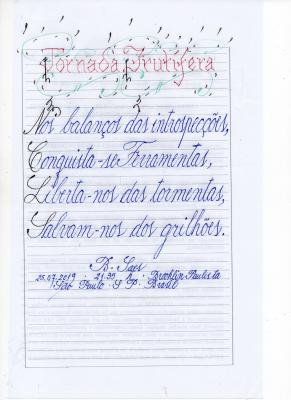 Tornada Frutífera
Nos balanços das introspecções,
Conquista-se Ferramentas,
Liberta-nos das tormentas,
Salvam-nos dos grilhões.
D. Saes
25.07.2019 : 21:35 h : Brooklin Paulista
São Paulo . S P. Brasil